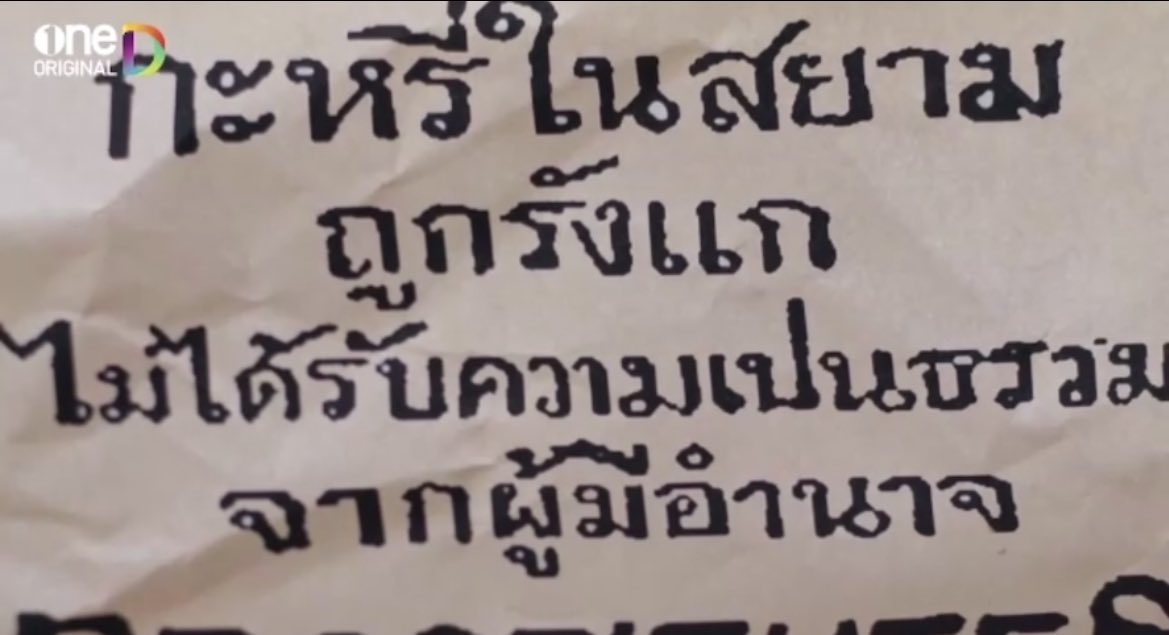 one D
ORIGINAL
กะหรี่ในสยาม
ถูกรังแก
ไม่ได้รับความเปนธรรม
จากผู้มีอำนาจ